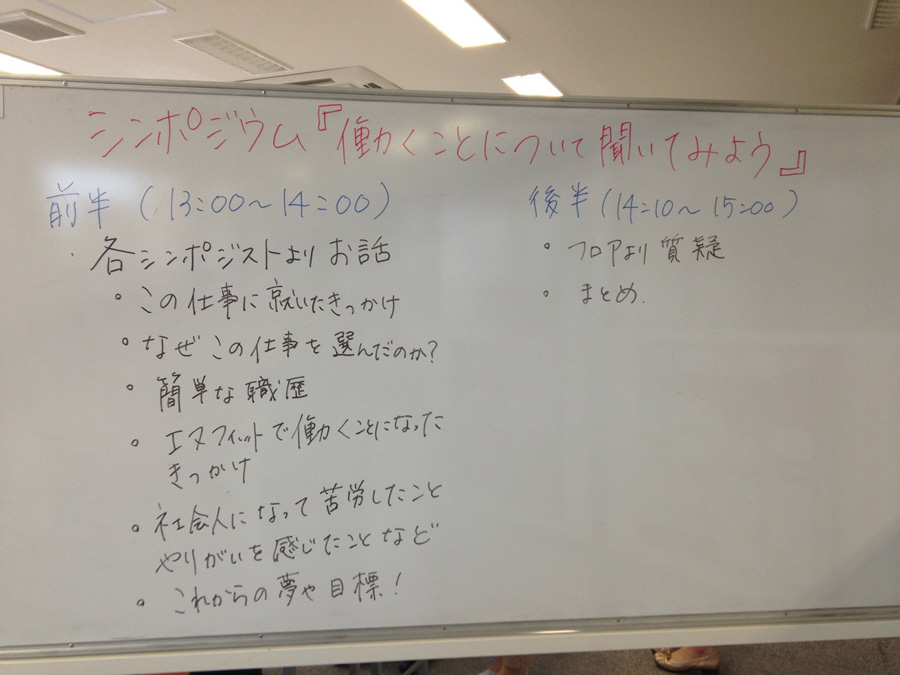 シンポジウム『働くことについて聞いてみよう』
前半（13:00～14:00）
・各シンポジストよりお話
。この仕事に就いたきっかけ
。なぜこの仕事を選んだのか?
。簡単な職歴
。エヌフィットで働くことになった
きっかけ
。社会人になって苦労したこと
やりがいを感じたことなど
。これからの夢や目標!
後半（14:10～15:00）
。フロアより質疑
。まとめ.